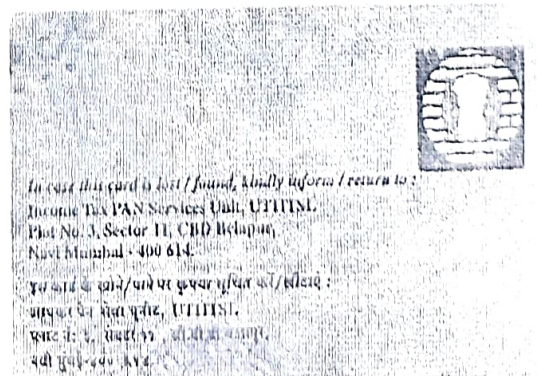 In case this card is lost / found, kindly inform / return to :
Income Tax PAN Services Unit, UTITSL
Plot No. 3, Sector 11, CBD Belapur,
Navi Mumbai - 400 614.
इस कार्ड के खोने/पाने पर कृपया सूचित करें/लौटाएं :
आयकर पैन सेवा यूनीट, UTITSL
प्लाट नं: ३, सेक्टर ११,
नवी मुंबई-४००